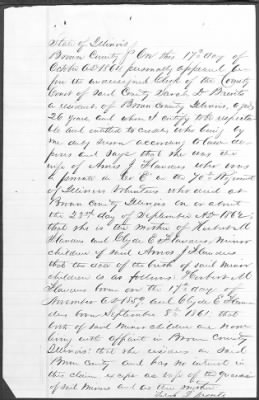 State of Illinois
Brown County } On this 17th day of
October A.D. 1864 personally appeared be
fore the undersigned Clerk of the County
Court of said County Sarah
a resident of Brown County Illinois, aged
26 years and whom I certify to be respecta
ble and entitled to credit who being by
me duly sworn according to law de
poses and says that she was the
wife of Amos J Flanders who was
a private in Co E in the 70th Regiment
of Illinois Volunteers who died at
Brown County Illinois on or about
the 23rd day of September AD 1862
that she is the mother of Herbert M
Flanders and Clyde E Flanders minor
children of said Amos J Flanders
that the date of the birth of said minor
children is as follows: Herbert M
Flanders born on the 17th day of
November A.D 1859 and Clyde E Flan
ders born September 8th 1861 that
both of said minor children are now
living with affiant in Brown County
Illinois: that she resides in said
Brown County and has no interest in
this claim except as wife of the guardian
of said minors and as their mother